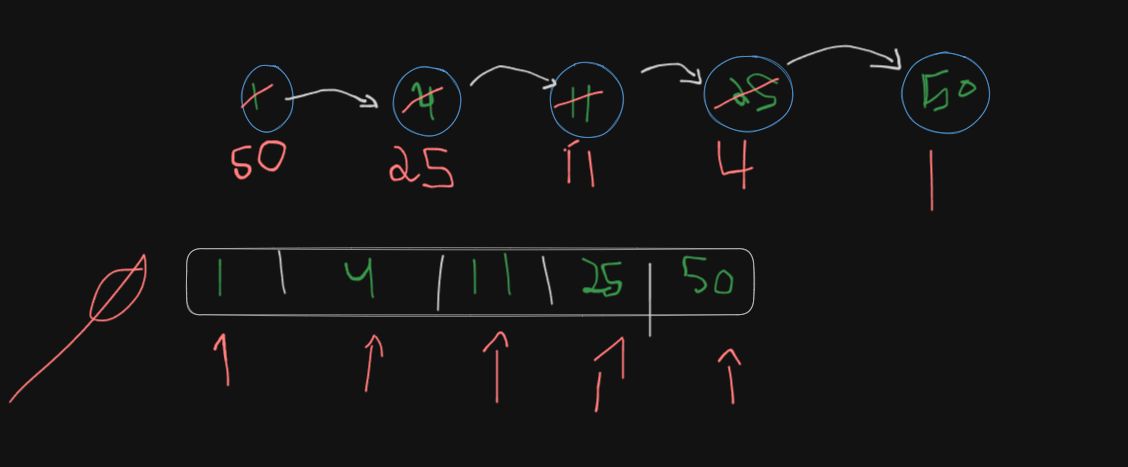 1 4 11 25 50
50 25 11 4 1
1 | 4 | 11 | 25 | 50